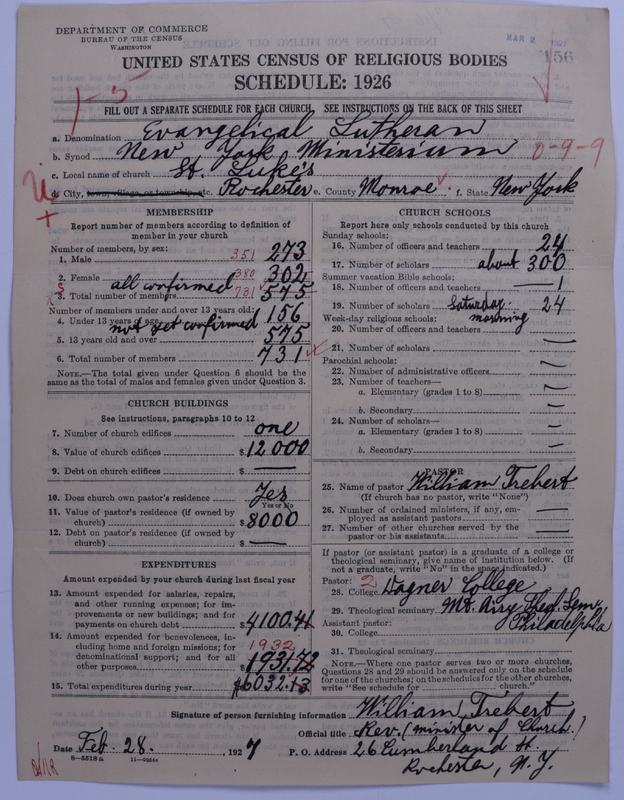 DEPARTMENT OF COMMERCE
BUREAU OF THE CENSUS
WASHINGTON
MAR 2 1927
156
UNITED STATES CENSUS OF RELIGIOUS BODIES
SCHEDULE: 1926
1-5
FILL OUT A SEPARATE SCHEDULE FOR EACH CHURCH. SEE INSTRUCTIONS ON THE BACK OF THIS SHEET
a. Denomination Evangelical Lutheran
b. Synod New York Ministerium 0-9-9
c. Local name of church St. Luke's
d. City, town, village, or township, etc. Rochester e. County Monroe f. State New York
MEMBERSHIP
Report number of members according to definition of member in your church
Number of members, by sex:
1. Male 351 273
2. Female 380 302
all confirmed
3. Total number of members 731 575
Number of members under and over 13 years old:
4. Under 13 years of age 156
not yet confirmed
5. 13 years old and over 575
6. Total number of members 731
NOTE.—The total given under Question 6 should be the same as the total of males and females given under Question 3.
CHURCH BUILDINGS
See instructions, paragraphs 10 to 12
7. Number of church edifices one
8. Value of church edifices $12000
9. Debt on church edifices $ —
10. Does church own pastor's residence Yes
Yes or No
11. Value of pastor's residence (if owned by church) $8000
12. Debt on pastor's residence (if owned by church) $ —
EXPENDITURES
Amount expended by your church during last fiscal year
13. Amount expended for salaries, repairs, and other running expenses; for improvements on new buildings; and for payments on church debt $4100.41
14. Amount expended for benevolences, including home and foreign missions; for denominational support; and for all other purposes 1932 $1931.72
15. Total expenditures during year $6032.13
CHURCH SCHOOLS
Report here only schools conducted by this church
Sunday schools:
16. Number of officers and teachers 24
17. Number of scholars about 300
Summer vacation Bible schools:
18. Number of officers and teachers 1
19. Number of scholars Saturday morning 24
Week-day religious schools:
20. Number of officers and teachers
21. Number of scholars —
Parochial schools:
22. Number of administrative officers —
23. Number of teachers—
a. Elementary (grades 1 to 8) —
b. Secondary —
24. Number of scholars—
a. Elementary (grades 1 to 8) —
b. Secondary —
PASTOR
25. Name of pastor William Trebert
(If church has no pastor, write "None")
26. Number of ordained ministers, if any, employed as assistant pastors —
27. Number of other churches served by the pastor or his assistants —
If pastor (or assistant pastor) is a graduate of a college or theological seminary, give name of institution below. (If not a graduate, write "No" in the space indicated.)
Pastor: 2
28. College Wagner College
29. Theological seminary Mt. Airy Theol. Sem. Philadelphia
Assistant pastor:
30. College
31. Theological seminary
NOTE.—Where one pastor serves two or more churches, Questions 28 and 29 should be answered only on the schedule for one of the churches; on the schedules for the other churches, write "See schedule for church."
Signature of person furnishing information William Trebert
Official title Rev. (minister of Church.)
Date Feb. 28. 1927
P. O. Address 26 Cumberland St.
Rochester, N.Y.
8—5518a 11—9254a